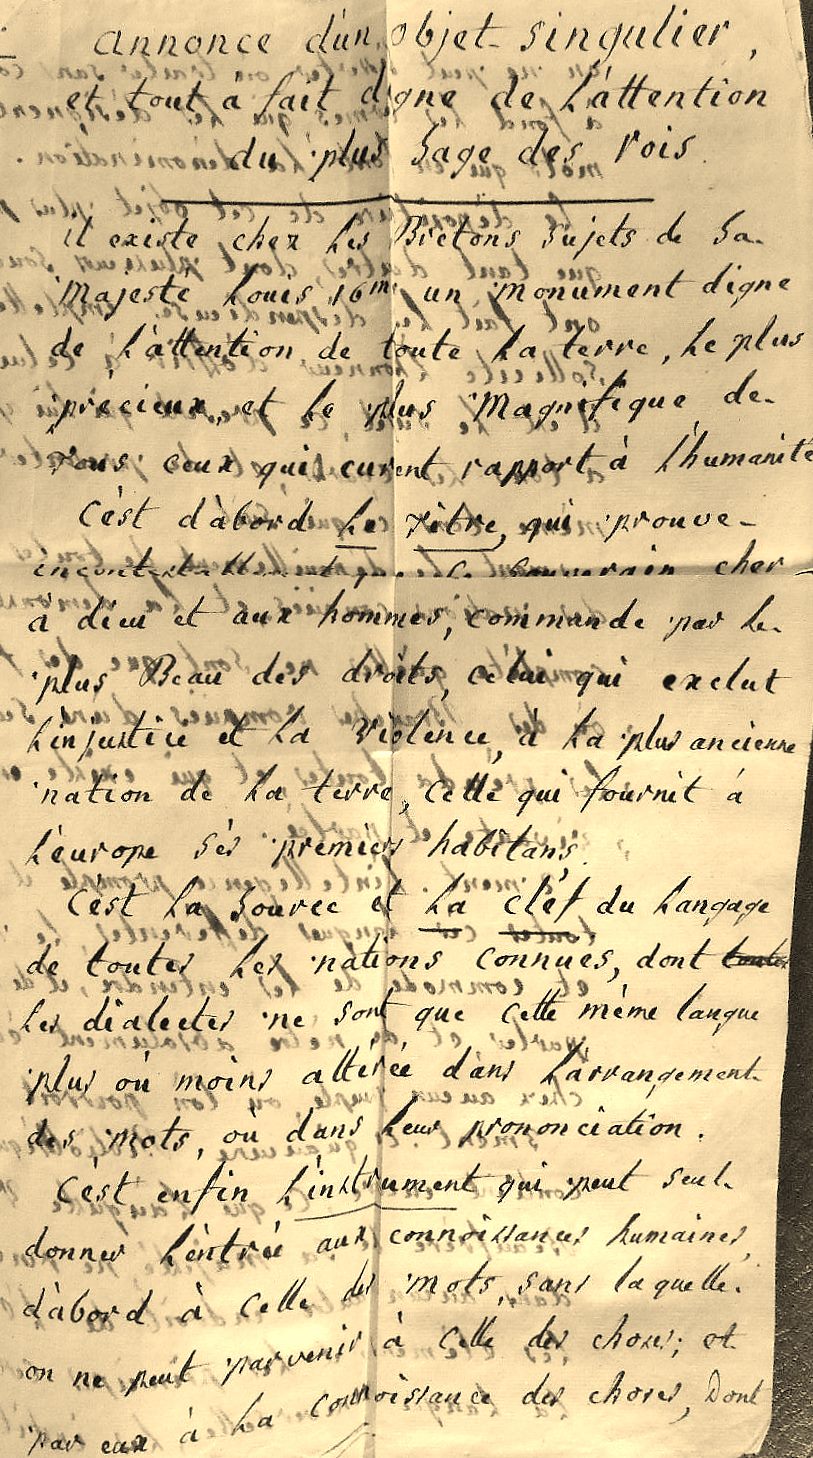 annonce d'un objet singulier,
et tout à fait digne de L'attention
du plus Sage des rois.
il existe chez Les Bretons Sujets de Sa
Majesté Louis 16me un monument digne
de L'attention de toute La terre, Le plus
précieux, et Le plus Magnifique de
tous ceux qui eurent rapport à L'humanité
C'est d'abord Le titre, qui prouve
incontestablement que ce Souverain cher
à dieu et aux hommes, commande par Le
plus Beau des droits, celui qui exclut
L'injustice et La violence, à La plus ancienne
nation de La terre, celle qui fournit à
L'europe ses premiers habitans.
C'est La Source et La clef du Langage
de toutes Les nations connues, dont toutes
Les dialectes ne sont que cette même langue
plus où moins altérée dans L'arrangement
des mots, où dans Leur prononciation.
C'est enfin L'instrument qui peut seul
donner L'entrée aux connoissances humaines,
d'abord à celle des mots, sans laquelle
on ne peut parvenir à celle des choses; et
par eux à La connoissance des choses, Dont